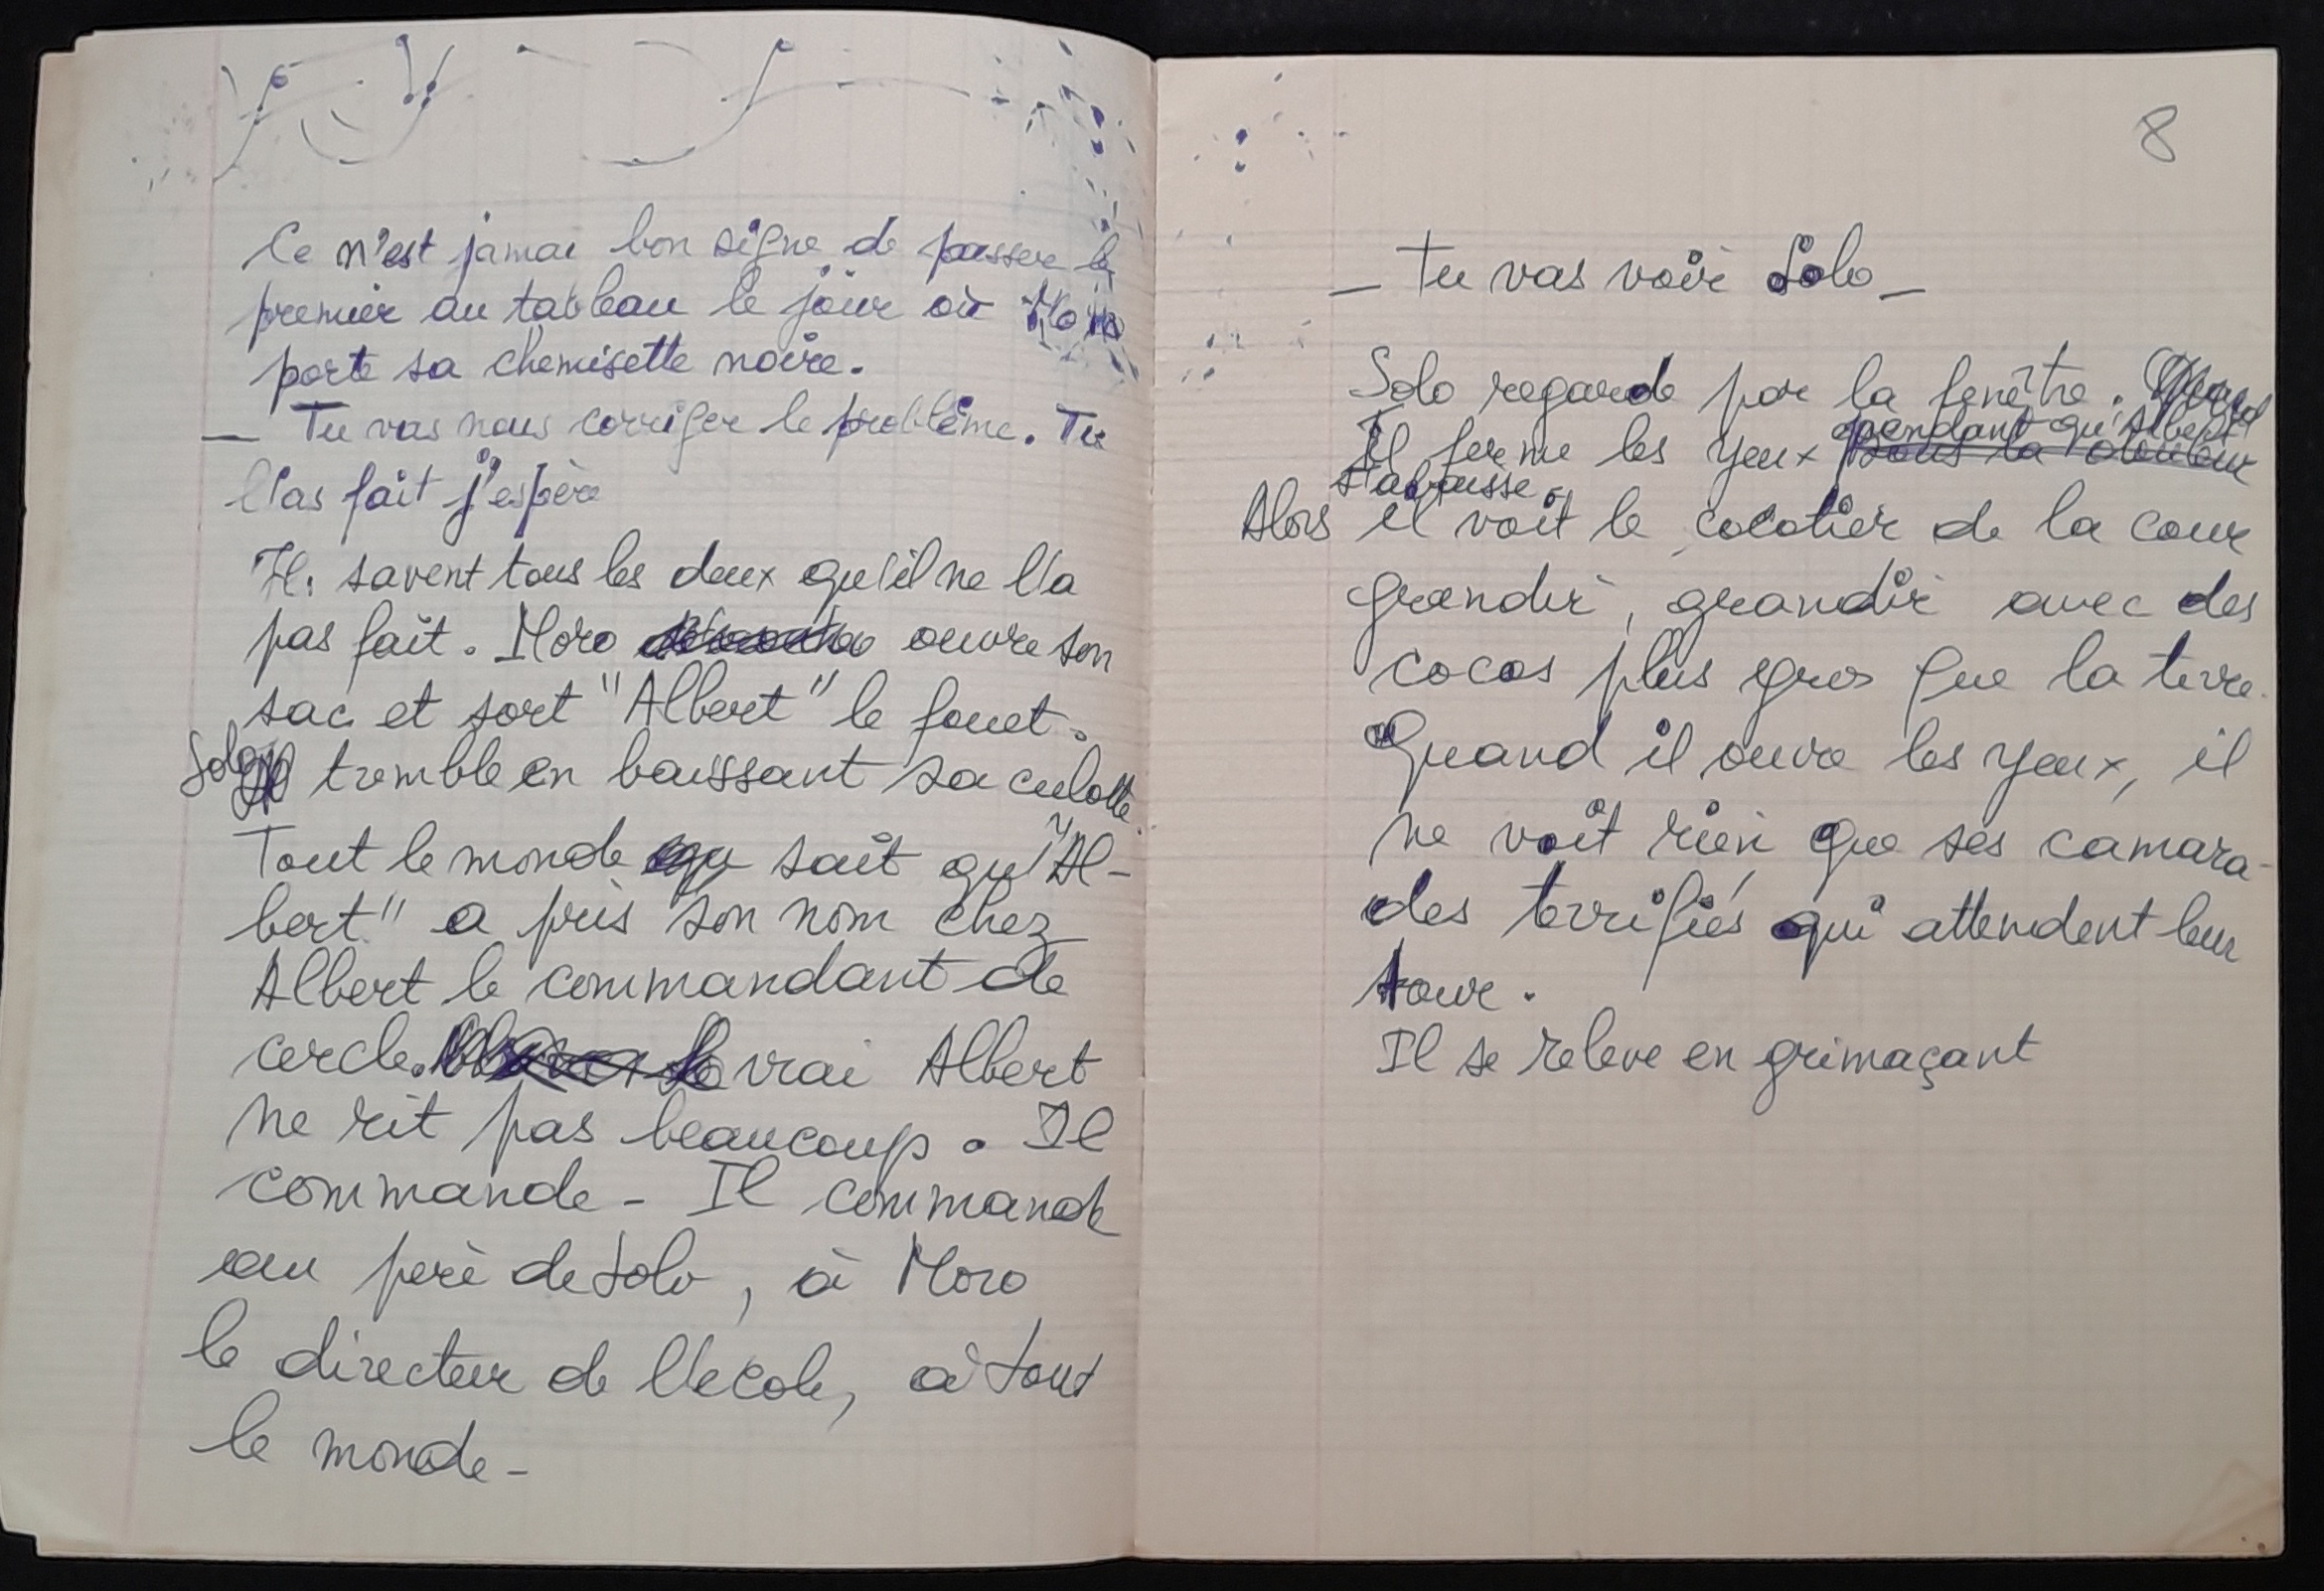 Ce n'est jamai bon signe de passer le
premier au tableau le jour où Moro
porte sa chemisette noire.
— Tu vas nous corriger le problème. Tu
l'as fait j'espère
Ils savent tous les deux qu'il ne l'a
pas fait. Moro ouvre son
sac et sort "Albert" le fouet.
Solo tremble en baissant sa culotte.
Tout le monde sait qu'"Al-
bert" a pris son nom chez
Albert le commandant de
cercle. Le vrai Albert
ne rit pas beaucoup. Il
commande - Il commande
au père de Solo, à Moro
le directeur de l'école, à tout
le monde -
8
— Tu vas voir Solo —
Solo regarde par la fenêtre.
Il ferme les yeux pendant qu'Albert
sous la douleur
s'abaisse.
Alors il voit le cocotier de la cour
grandir, grandir avec des
cocos plus gros que la terre.
Quand il ouvre les yeux, il
ne voit rien que ses camara-
des terrifiés qui attendent leur
tour.
Il se releve en grimaçant